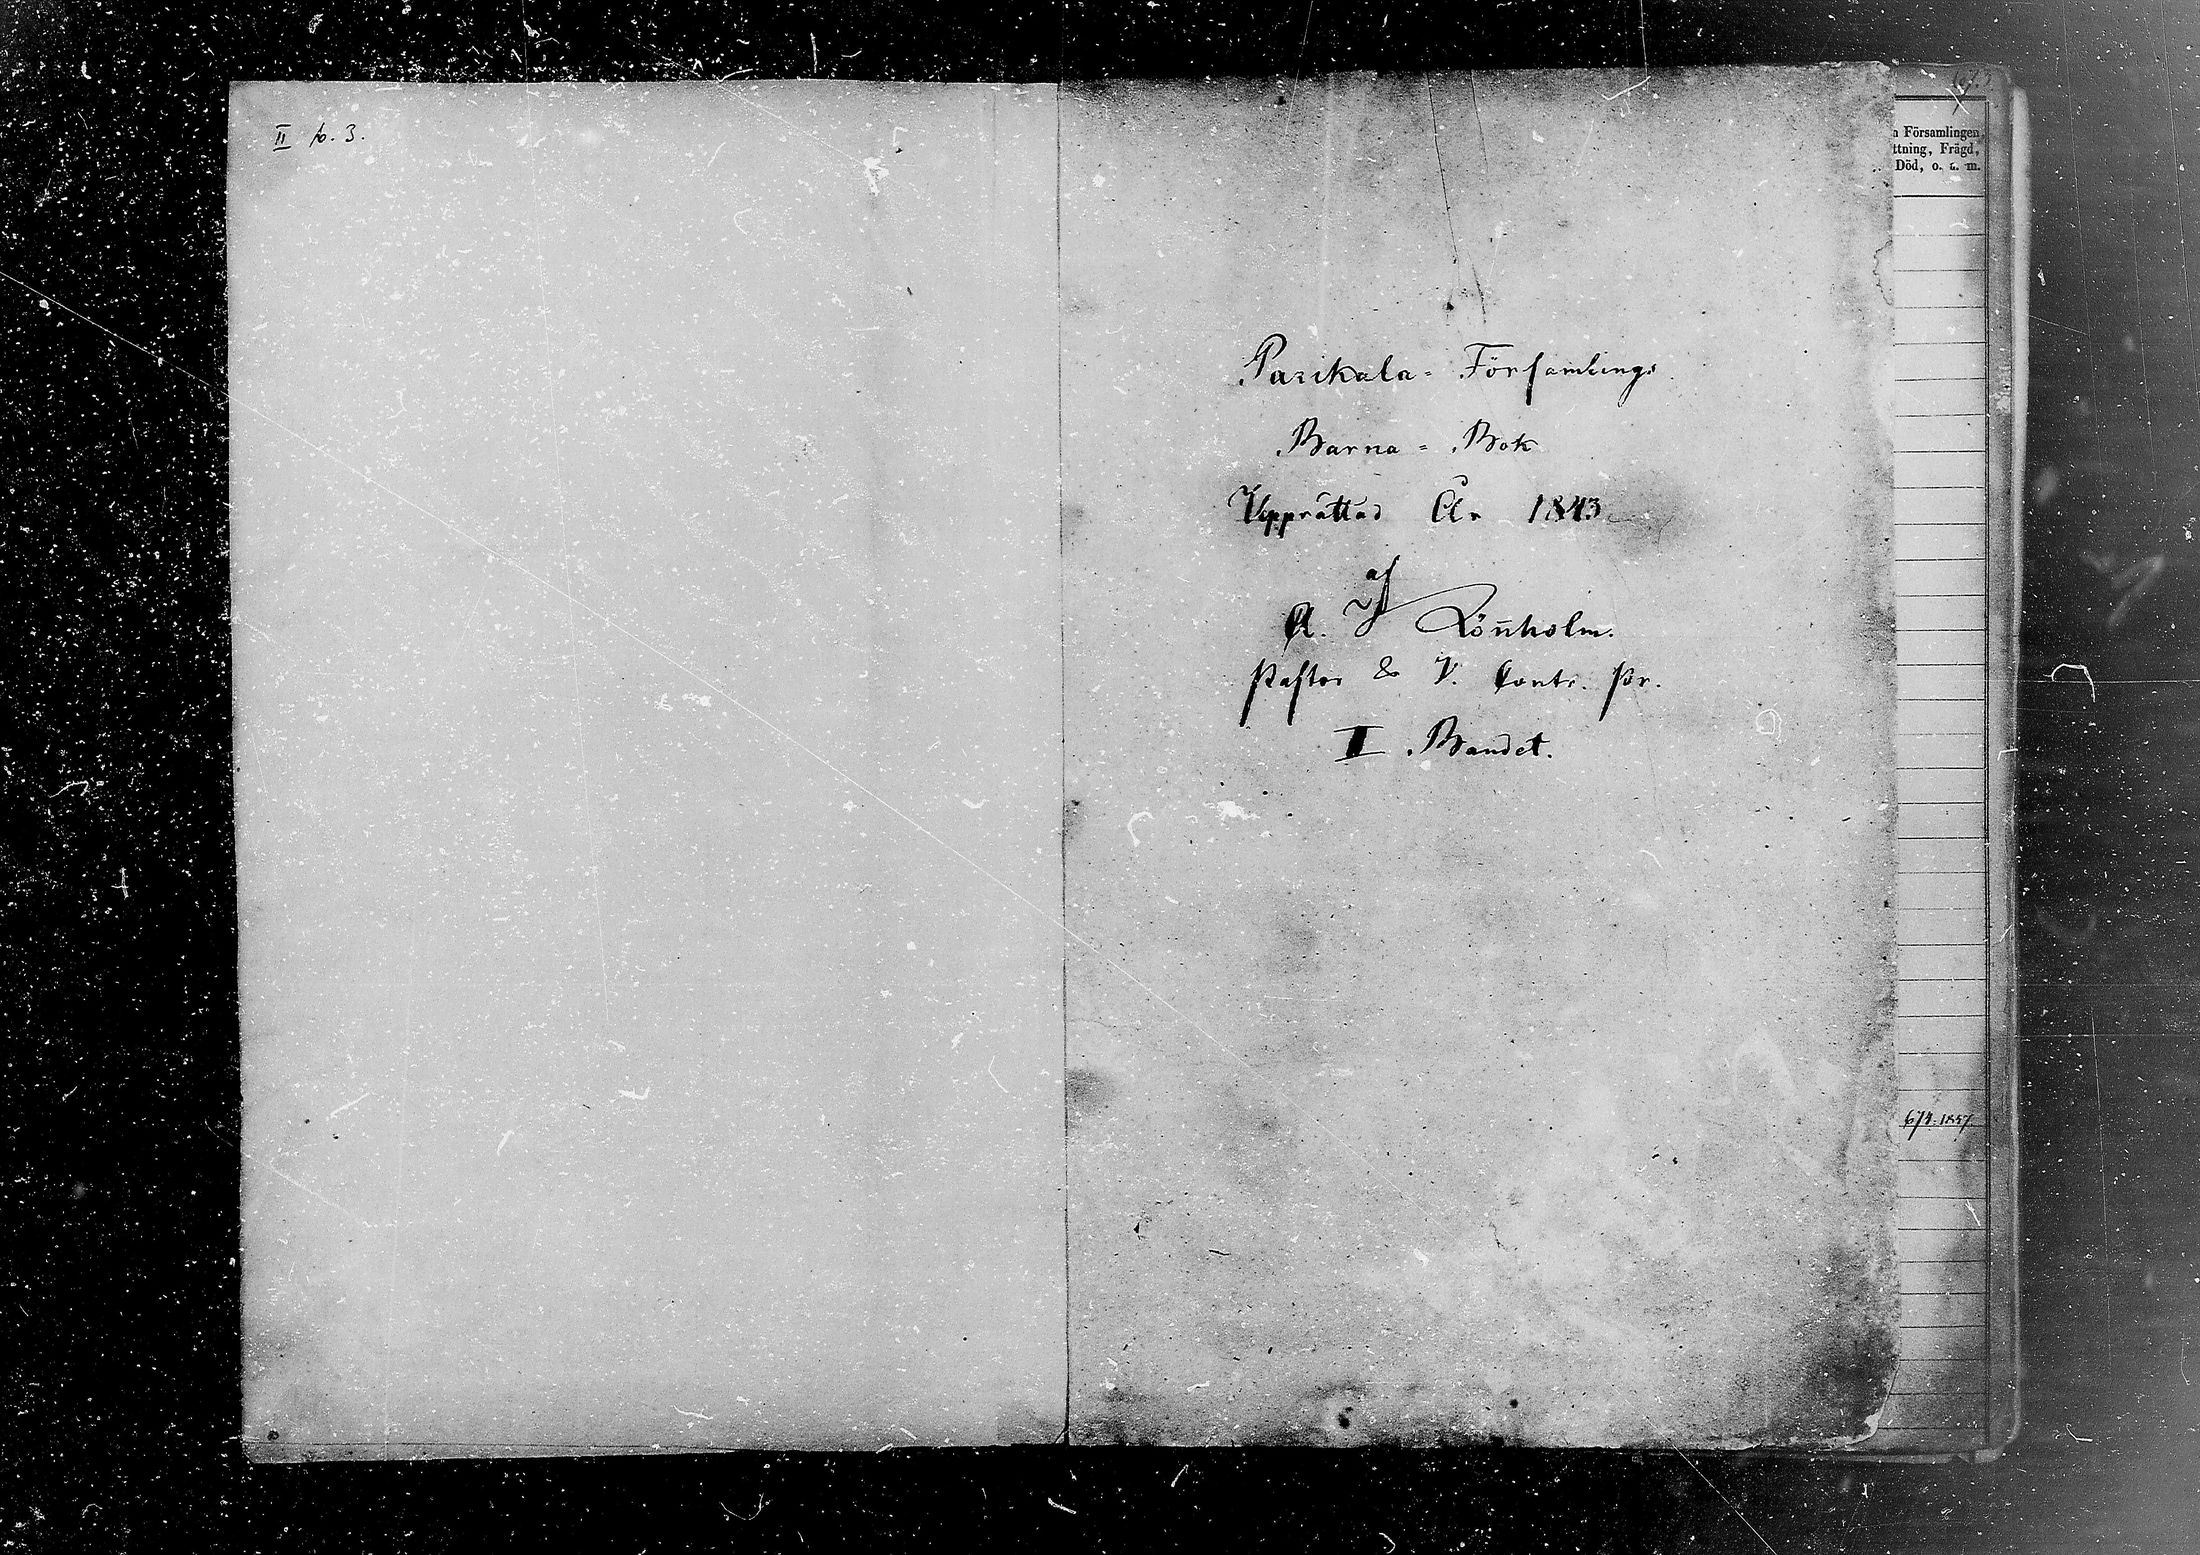 II b. 3.
Parikala = Församlings
Barna = Bok
Upprättad År 1843
af
A. J. Lönholm.
Pastor & V. Contr. Pr.
II Bandet.
n Församlingen
ttning, Frägd,
Död, o. a. m.